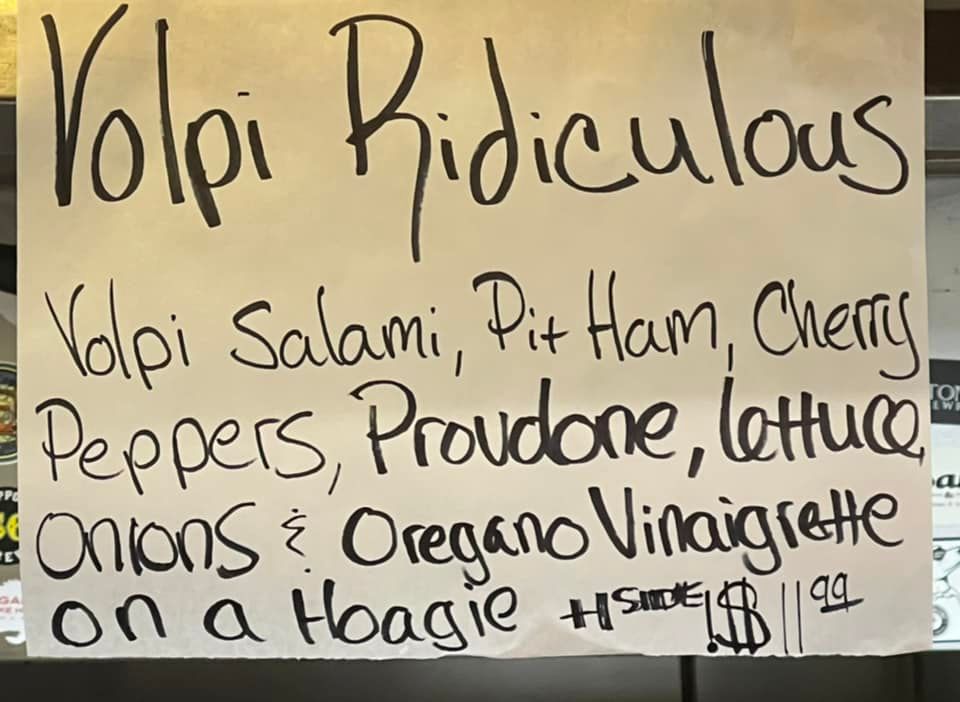 Volpi Ridiculous
Volpi Salami, Pit Ham, Cherry
Peppers, Provolone, lettuce,
Onions & Oregano Vinaigrette
on a Hoagie + SIDE! $11.99